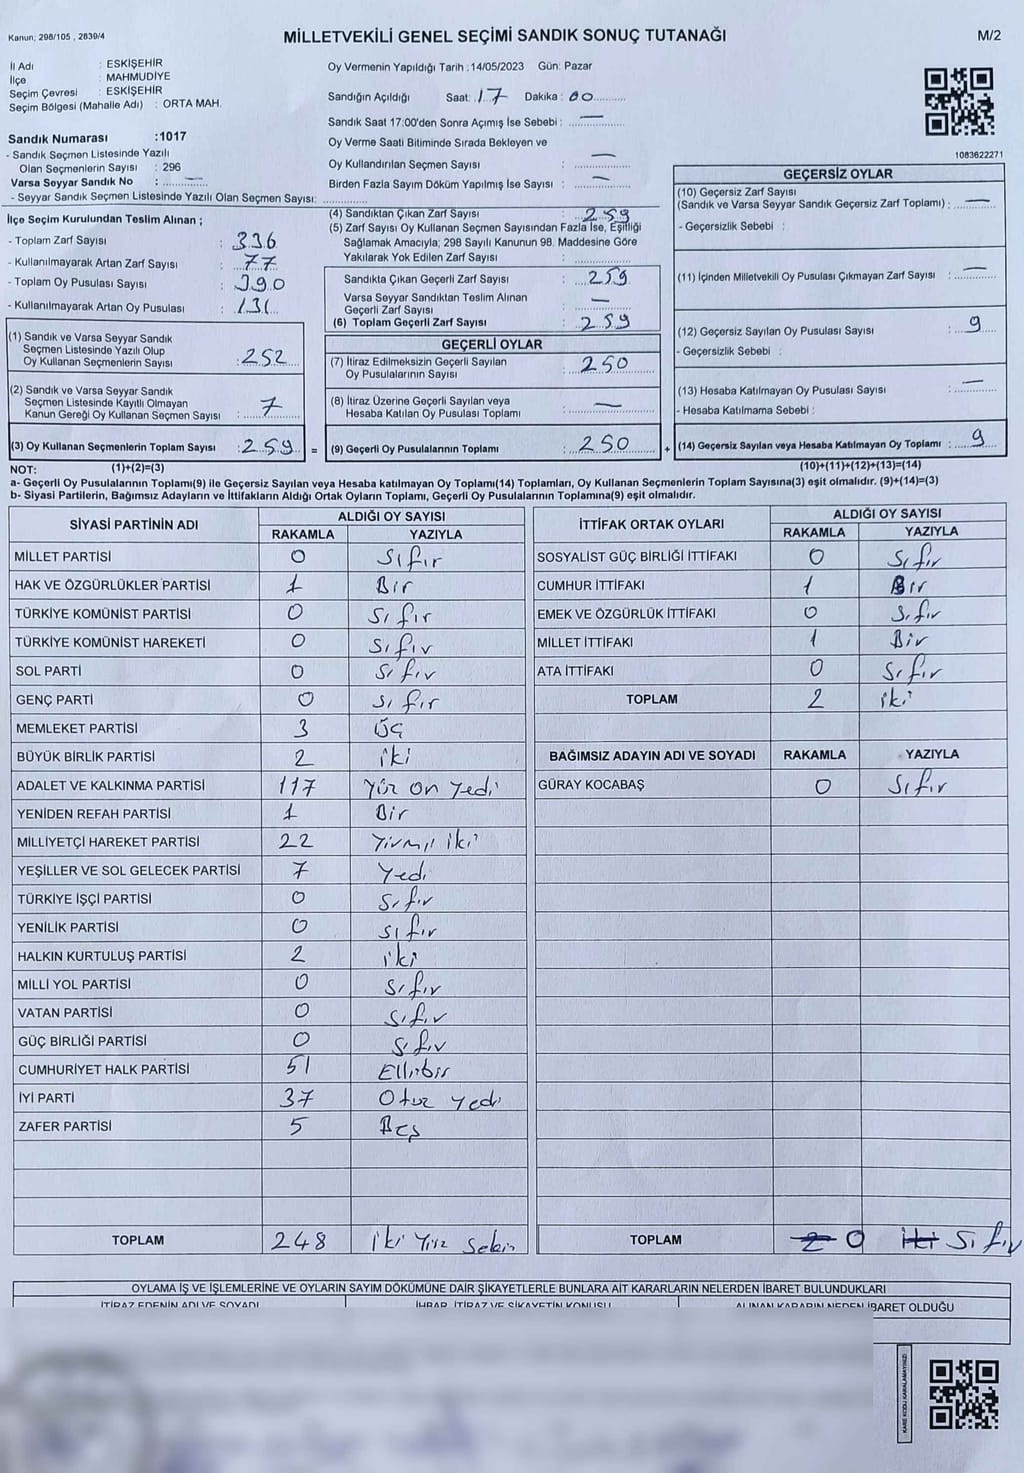 Kanun; 298/105 , 2839/4
MİLLETVEKİLİ GENEL SEÇİMİ SANDIK SONUÇ TUTANAĞI
M/2
İl Adı : ESKİŞEHİR
İlçe : MAHMUDİYE
Seçim Çevresi : ESKİŞEHİR
Seçim Bölgesi (Mahalle Adı) : ORTA MAH.
Sandık Numarası :1017
- Sandık Seçmen Listesinde Yazılı
Olan Seçmenlerin Sayısı : 296
Varsa Seyyar Sandık No : —
- Seyyar Sandık Seçmen Listesinde Yazılı Olan Seçmen Sayısı:
Oy Vermenin Yapıldığı Tarih :14/05/2023 Gün: Pazar
Sandığın Açıldığı Saat: 17 Dakika : 00
Sandık Saat 17:00'den Sonra Açımış İse Sebebi : —
Oy Verme Saati Bitiminde Sırada Bekleyen ve
Oy Kullandırılan Seçmen Sayısı : —
Birden Fazla Sayım Döküm Yapılmış İse Sayısı : —
1083622271
İlçe Seçim Kurulundan Teslim Alınan ;
- Toplam Zarf Sayısı : 336
- Kullanılmayarak Artan Zarf Sayısı : 77
- Toplam Oy Pusulası Sayısı : 390
- Kullanılmayarak Artan Oy Pusulası : 131
(1) Sandık ve Varsa Seyyar Sandık
Seçmen Listesinde Yazılı Olup
Oy Kullanan Seçmenlerin Sayısı : 252
(2) Sandık ve Varsa Seyyar Sandık
Seçmen Listesinde Kayıtlı Olmayan
Kanun Gereği Oy Kullanan Seçmen Sayısı : 7
(3) Oy Kullanan Seçmenlerin Toplam Sayısı : 259 =
(4) Sandıktan Çıkan Zarf Sayısı : 259
(5) Zarf Sayısı Oy Kullanan Seçmen Sayısından Fazla İse, Eşitliği
Sağlamak Amacıyla; 298 Sayılı Kanunun 98. Maddesine Göre
Yakılarak Yok Edilen Zarf Sayısı :
Sandıkta Çıkan Geçerli Zarf Sayısı : 259
Varsa Seyyar Sandıktan Teslim Alınan
Geçerli Zarf Sayısı : —
(6) Toplam Geçerli Zarf Sayısı : 259
GEÇERLİ OYLAR
(7) İtiraz Edilmeksizin Geçerli Sayılan
Oy Pusulalarının Sayısı : 250
(8) İtiraz Üzerine Geçerli Sayılan veya
Hesaba Katılan Oy Pusulası Toplamı : —
(9) Geçerli Oy Pusulalarının Toplamı : 250 +
GEÇERSİZ OYLAR
(10) Geçersiz Zarf Sayısı
(Sandık ve Varsa Seyyar Sandık Geçersiz Zarf Toplamı) : —
- Geçersizlik Sebebi :
(11) İçinden Milletvekili Oy Pusulası Çıkmayan Zarf Sayısı : —
(12) Geçersiz Sayılan Oy Pusulası Sayısı : 9
- Geçersizlik Sebebi :
(13) Hesaba Katılmayan Oy Pusulası Sayısı : —
- Hesaba Katılmama Sebebi :
(14) Geçersiz Sayılan veya Hesaba Katılmayan Oy Toplamı : 9
NOT: (1)+(2)=(3) (10)+(11)+(12)+(13)=(14)
a- Geçerli Oy Pusulalarının Toplamı(9) ile Geçersiz Sayılan veya Hesaba katılmayan Oy Toplamı(14) Toplamları, Oy Kullanan Seçmenlerin Toplam Sayısına(3) eşit olmalıdır. (9)+(14)=(3)
b- Siyasi Partilerin, Bağımsız Adayların ve İttifakların Aldığı Ortak Oyların Toplamı, Geçerli Oy Pusulalarının Toplamına(9) eşit olmalıdır.
SİYASİ PARTİNİN ADI ALDIĞI OY SAYISI
RAKAMLA YAZIYLA
MİLLET PARTİSİ 0 Sıfır
HAK VE ÖZGÜRLÜKLER PARTİSİ 1 Bir
TÜRKİYE KOMÜNİST PARTİSİ 0 Sıfır
TÜRKİYE KOMÜNİST HAREKETİ 0 Sıfır
SOL PARTİ 0 Sıfır
GENÇ PARTİ 0 Sıfır
MEMLEKET PARTİSİ 3 Üç
BÜYÜK BİRLİK PARTİSİ 2 iki
ADALET VE KALKINMA PARTİSİ 117 Yüz On Yedi
YENİDEN REFAH PARTİSİ 1 Bir
MİLLİYETÇİ HAREKET PARTİSİ 22 Yirmi iki
YEŞİLLER VE SOL GELECEK PARTİSİ 7 Yedi
TÜRKİYE İŞÇİ PARTİSİ 0 Sıfır
YENİLİK PARTİSİ 0 Sıfır
HALKIN KURTULUŞ PARTİSİ 2 iki
MİLLİ YOL PARTİSİ 0 Sıfır
VATAN PARTİSİ 0 Sıfır
GÜÇ BİRLİĞİ PARTİSİ 0 Sıfır
CUMHURİYET HALK PARTİSİ 51 Ellibir
İYİ PARTİ 37 Otuz Yedi
ZAFER PARTİSİ 5 Beş
TOPLAM 248 iki Yüz
İTTİFAK ORTAK OYLARI ALDIĞI OY SAYISI
RAKAMLA YAZIYLA
SOSYALİST GÜÇ BİRLİĞİ İTTİFAKI 0 Sıfır
CUMHUR İTTİFAKI 1 Bir
EMEK VE ÖZGÜRLÜK İTTİFAKI 0 Sıfır
MİLLET İTTİFAKI 1 Bir
ATA İTTİFAKI 0 Sıfır
TOPLAM 2 iki
BAĞIMSIZ ADAYIN ADI VE SOYADI RAKAMLA YAZIYLA
GÜRAY KOCABAŞ 0 Sıfır
TOPLAM 2 0 iki Sıfır
OYLAMA İŞ VE İŞLEMLERİNE VE OYLARIN SAYIM DÖKÜMÜNE DAİR ŞİKAYETLERLE BUNLARA AİT KARARLARIN NELERDEN İBARET BULUNDUKLARI
İTİRAZ EDENİN ADI VE SOYADI İHBAR, İTİRAZ VE ŞİKAYETİN KONUSU ALINAN KARARIN NEDEN İBARET OLDUĞU
KARE KODU KARALAMAYINIZ!